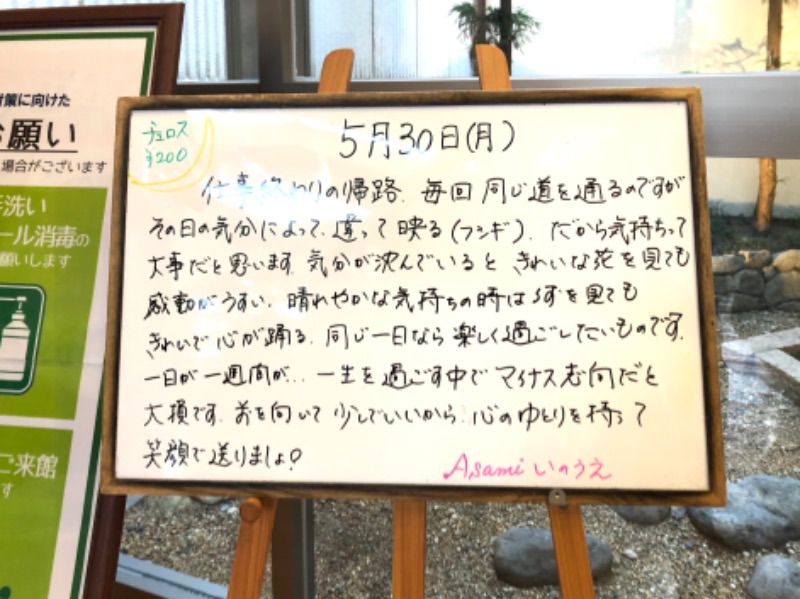 策に向けた
お願い
場合がございます
手洗い
ール消毒の
願いします
ご来館
す
チュロス
¥200
5月30日(月)
仕事終わりの帰路、毎回同じ道を通るのですが
その日の気分によって、違って映る(フシギ)、だから気持ちって
大事だと思います。気分が沈んでいるときれいな花を見ても
感動がうすい、晴れやかな気持ちの時はくずを見ても
きれいで心が踊る、同じ一日なら楽しく過ごしたいものです。
一日が一週間が...一生を過ごす中でマイナス志向だと
大損です。前を向いて少しでいいから、心のゆとりを持って
笑顔で送りましょ?
Asamiいのうえ